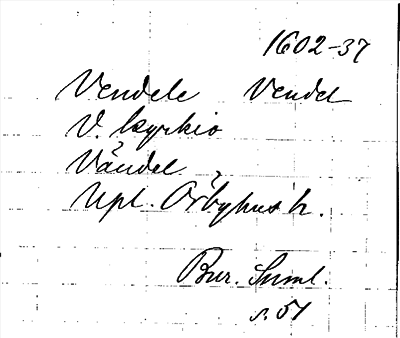 1602-37
Vendele Vendel
V. kyrkio
Vändel.
Upl. Örbyhus h.
Bur. Suml.
s. 51